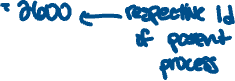 = 2600 ← respective id
if parent
process